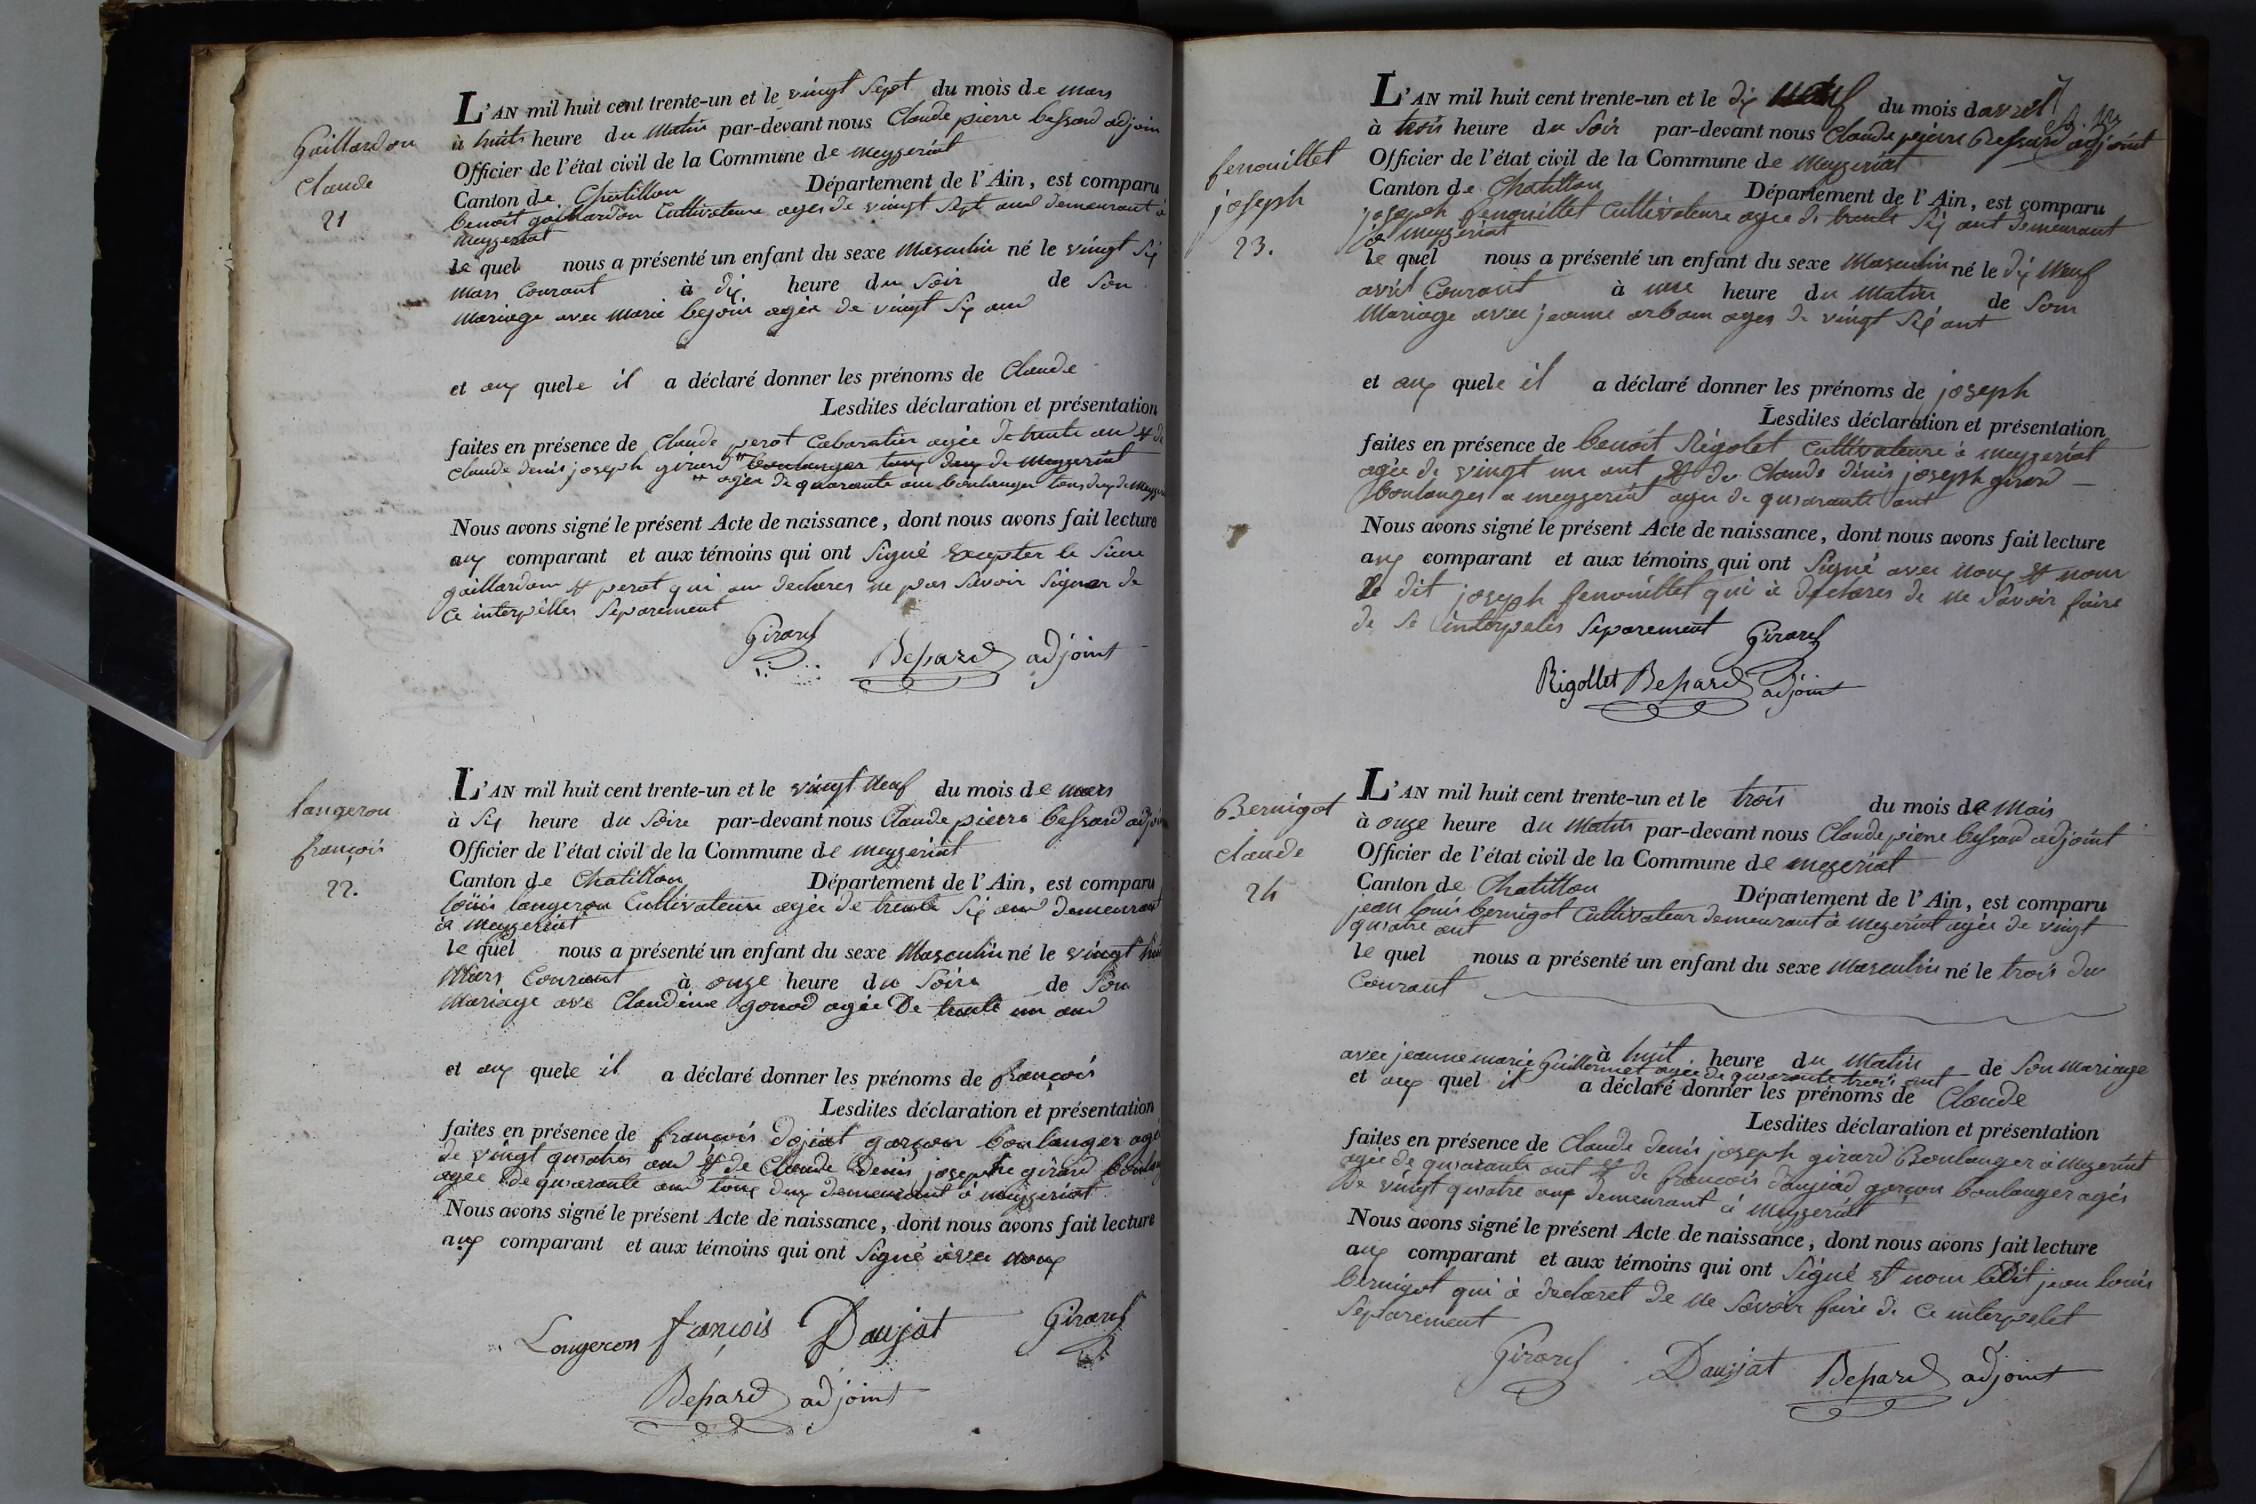 Gaillardon
claude
21
L'AN mil huit cent trente-un et le vingt Sept du mois de mars
à huits heure du Matin par-devant nous Claude pierre bessard adjoin
Officier de l'état civil de la Commune de meyzeriat
Canton de Chatillon Département de l'Ain, est comparu
benoit gaillardon Cultivateure ager de vingt Sept ans demeurant à
meyzeriat
le quel nous a présenté un enfant du sexe Masculin né le vingt Six
Mars Courant à dix heure du Soir de Son
Mariage avec Marie bejoin agée de vingt Six ans
et aux quele il a déclaré donner les prénoms de Claude
Lesdites déclaration et présentation
faites en présence de Claude perot Cabaratier agée de trente ans & de
Claude denis joseph girard boulanger tous deux de Meyzeriat
agée de quarante ans boulanger tous deux de Meyze
Nous avons signé le présent Acte de naissance, dont nous avons fait lecture
aux comparant et aux témoins qui ont Signé Excepter le Sieur
gaillardon & perot qui on declares ne pas Savoir Signer de
Ce interpelles Separement
Girard
Bessard adjoint
langeron
françois
22.
L'AN mil huit cent trente-un et le vingt Neuf du mois de mars
à Six heure du Soire par-devant nous Claude pierre bessard adjoin
Officier de l'état civil de la Commune de meyzeriat
Canton de Chatillon Département de l'Ain, est comparu
louis langeron Cultivateure agée de trente Six ans demeurant
à meyzeriat
le quel nous a présenté un enfant du sexe Masculin né le vingt huit
Mars Courant à onze heure du Soire de Son
Mariage ave Claudine gonod agée De trente un ans
et aux quele il a déclaré donner les prénoms de françois
Lesdites déclaration et présentation
faites en présence de françois dojat garçon boulanger agé
de vingt quatres ans & de Claude Denis josephe girard boulan
agée de quarante ans tous deux demeurant à meyzeriat
Nous avons signé le présent Acte de naissance, dont nous avons fait lecture
aux comparant et aux témoins qui ont Signé avec nous
Langeron françois Daujat Girard
Bessard adjoint
fenouillet
joseph
23.
L'AN mil huit cent trente-un et le dix Neuf du mois davril
à trois heure du Soir par-devant nous Claude pierre Bessard adjoint
Officier de l'état civil de la Commune de Meyzeriat
Canton de Chatillon Département de l'Ain, est comparu
joseph fenouillet Cultivateure agée de trente Six ant demeurant
à meyzeriat
le quel nous a présenté un enfant du sexe Masculin né le dix Neuf
avril Courant à une heure du Matin de Son
Mariage avec jeanne arbam ages de vingt Six ant
et aux quele il a déclaré donner les prénoms de joseph
Lesdites déclaration et présentation
faites en présence de benoit Rigolet Cultivateure à meyzeriat
agée de vingt un ant & de Claude dénis joseph girard
boulanger a meyzeriat ager de quarante ant
Nous avons signé le présent Acte de naissance, dont nous avons fait lecture
aux comparant et aux témoins qui ont Signé avec nous & nom
le dit joseph fenouillet qui à declares de ne Savoir faire
de Se interpeles Separement Girard
Rigollet Bessard adjoint
Bernigot
claude
24
L'AN mil huit cent trente-un et le trois du mois de Mais
à onze heure du Matin par-devant nous Claude pierre bessard adjoint
Officier de l'état civil de la Commune de mezeriat
Canton de Chatillon Département de l'Ain, est comparu
jean louis bernigot Cultivateur demeurant à Mezeriat agée de vingt
quatre ant
le quel nous a présenté un enfant du sexe Masculin né le trois du
Courant
à huit heure du Matin de Son Mariage
avec jeanne marie Guillermet agée de quarante trois ant
et aux quel il a déclaré donner les prénoms de Claude
Lesdites déclaration et présentation
faites en présence de Claude denis joseph girard Boulanger à Mezeriat
agée de quarante ant & de françois daujad garçon boulanger agés
de vingt quatre ans demeurant à Meyzeriat
Nous avons signé le présent Acte de naissance, dont nous avons fait lecture
aux comparant et aux témoins qui ont Signé et nom leDit jean louis
bernigot qui à declaret de ne Savoir faire de Ce interpelet
Separement
Girard Daujat Bessard adjoint